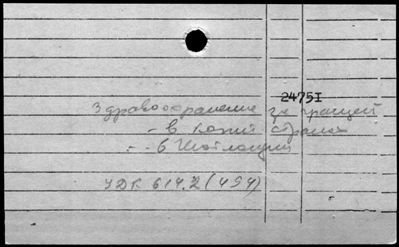 24751
Здравоохранение за границей
- в капит странах
- - в Шотландии
УДК 614.2(494)